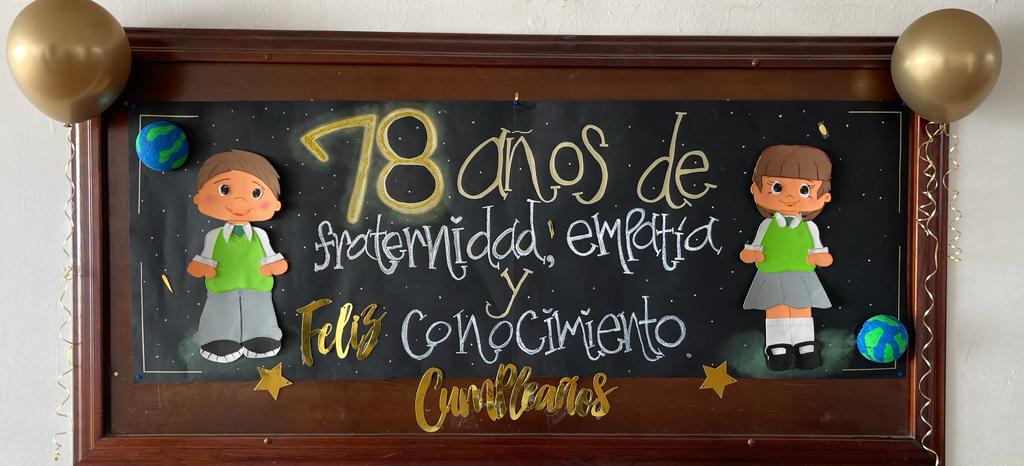 78 años de
fraternidad, empatía
y
conocimiento.
Feliz
Cumpleaños